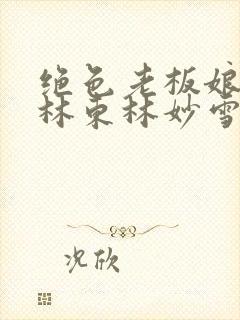 绝色老板娘
林东林妙雪
况欣